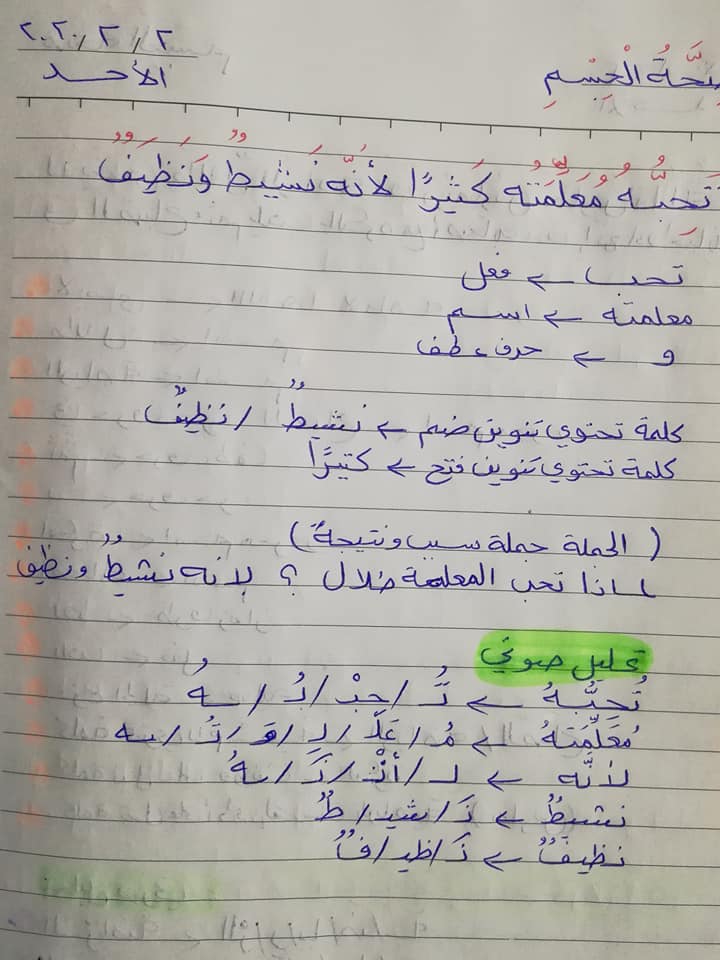 ٢٠٢٠/٢/٢
صِحَّةُ الْجِسْمِ
الأحد
تُحِبُّه مُعَلِّمَتُه كَثيرًا لأنَّه نَشيطٌ وَنَظِيفٌ
تحب ← فعل
معلمته ← اسم
و ← حرف عطف
كلمة تحتوي تنوين ضم ← نشيطٌ / نظيفٌ
كلمة تحتوي تنوين فتح ← كثيرًا
( الجملة جملة سبب ونتيجة )
لماذا تحب المعلمة طلال ؟ لانه نشيطٌ ونظيف
تحليل صوتي
تُحِبُّهُ ← تُـ / حِبْ / بُـ / ـهُ
مُعَلِّمَتهُ ← مُـ / عَلْـ / لِـ / مَـ / تُـ / ـه
لأنَّه ← لـ / أنْـ / نَـ / ـهُ
نشيطٌ ← نَـ / شيـ / طٌ
نظيفٌ ← نَـ / ظيـ / فٌ